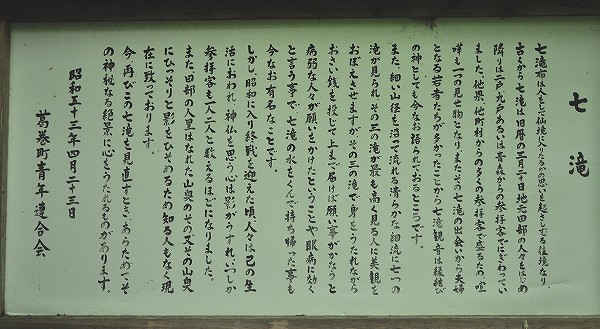 七滝
七滝布は人をして仙境に入りたるかの思いを起さしむる佳境なり。
古くから七滝は旧暦の三月二十日地元田部の人々をはじめ
隣りは二戸、九戸あるいは青森からの参拝客でにぎわってい
ました。他県、他町村からの多くの参拝客で盛るため喧
嘩も一つの見せ物となり、またその七滝の出会いから夫婦
となる若者たちが多かったことから七滝観音は縁結び
の神としても今なお語られておるところです。
また、細い山径を沿って流れる清らかな細流に七つの
滝が見られ、その三の滝が最も高く見る人に美観を
おぼえさせますがその三の滝で身をうたれながら
おさい銭を投じて上まで届けば願い事がかなうと
病弱な人々が願いをかけたということや眼病に効く
と言う事で七滝の水をくんで持ち帰った事も
今なお有名なことです。
しかし、昭和に入り終戦を迎えた頃、人々は己の生
活におわれ、神仏を思う心は影がうすれ、いつしか
参拝客も一人、二人と数えるほどになりました。
また田部の人里はなれた山奥のその又その山奥
にひっそりと影をひそめるため知る人もなく現
在に致っております。
今、再びこの七滝を見直すとき、あらためてそ
の神秘なる絶景に心をうたれるものがあります。
昭和五十三年四月二十三日
葛巻町青年連合会